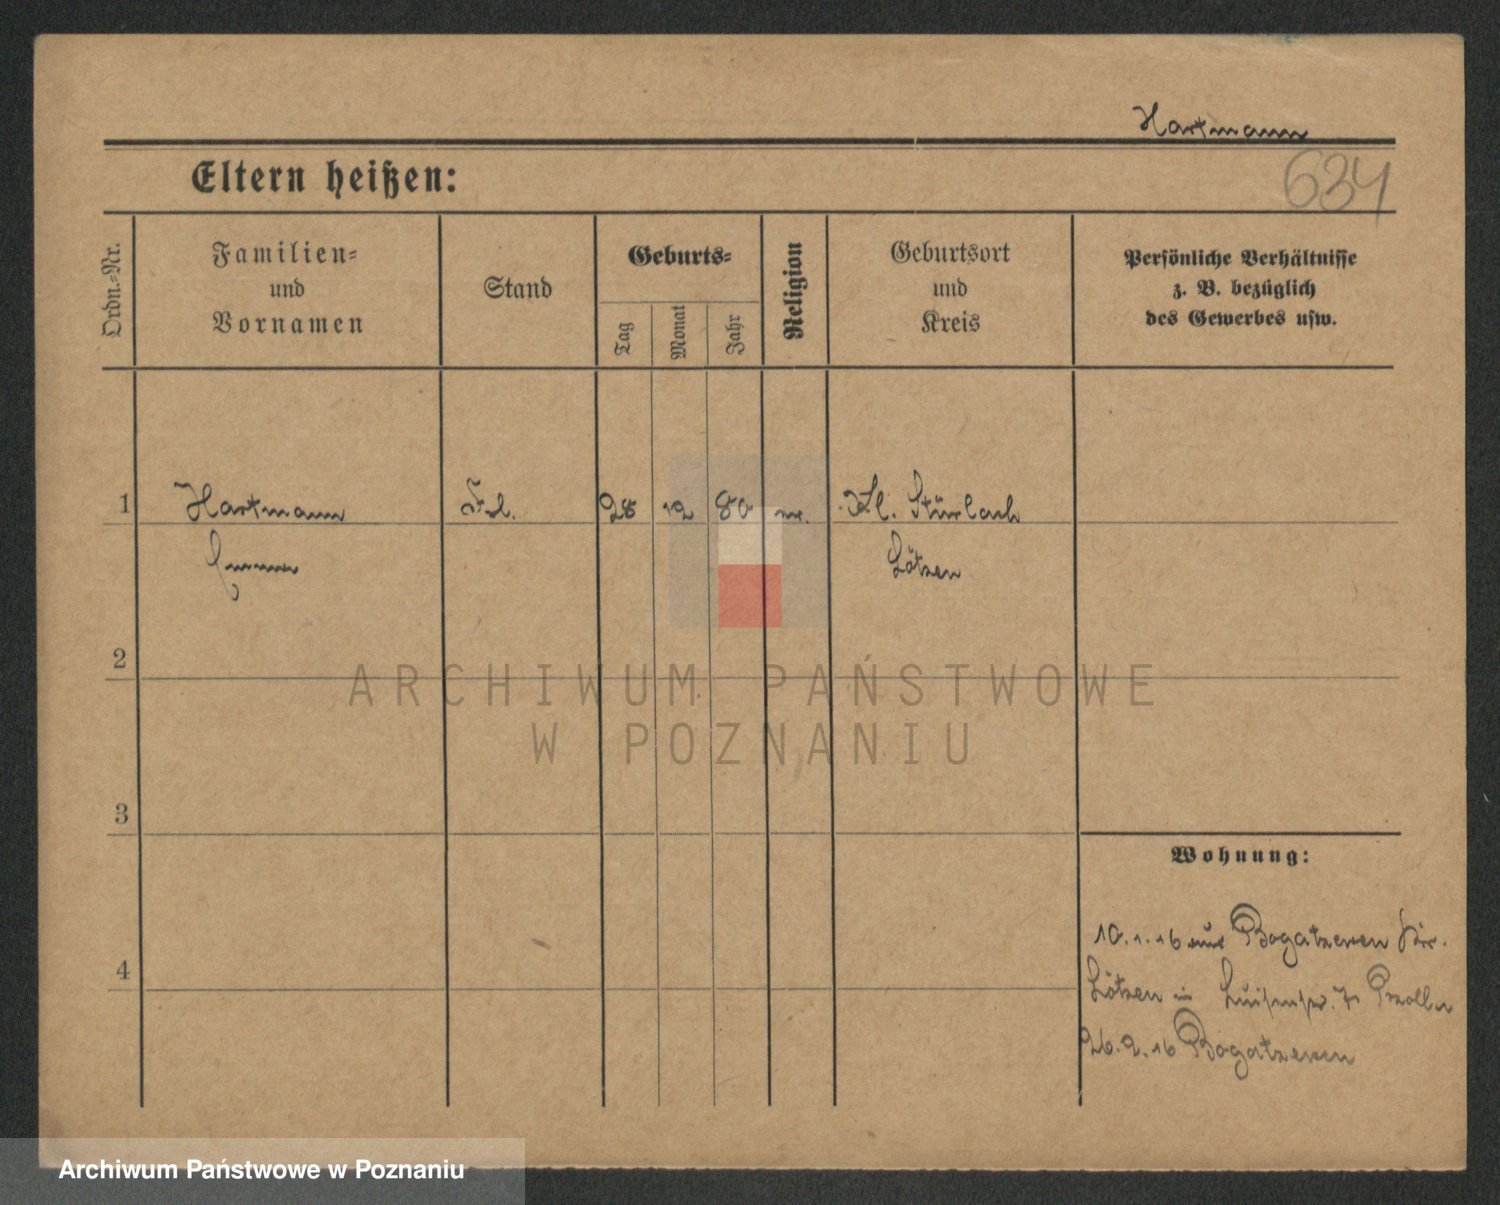 Hartmann
634
Eltern heißen:
Ordn.=Nr.
Familien=
und
Vornamen
Stand
Geburts=
Tag
Monat
Jahr
Religion
Geburtsort
und
Kreis
Persönliche Verhältnisse
z. B. bezüglich
des Gewerbes usw.
1 Hartmann Frl. 28 12 80 Kl. Stürlack
Lötzen
2
3
4
Wohnung:
10.1.16 aus Bogatzewen Kr.
Lötzen in Luisenstr. 7
26.2.16 Bogatzewen
ARCHIWUM PAŃSTWOWE
W POZNANIU
Archiwum Państwowe w Poznaniu